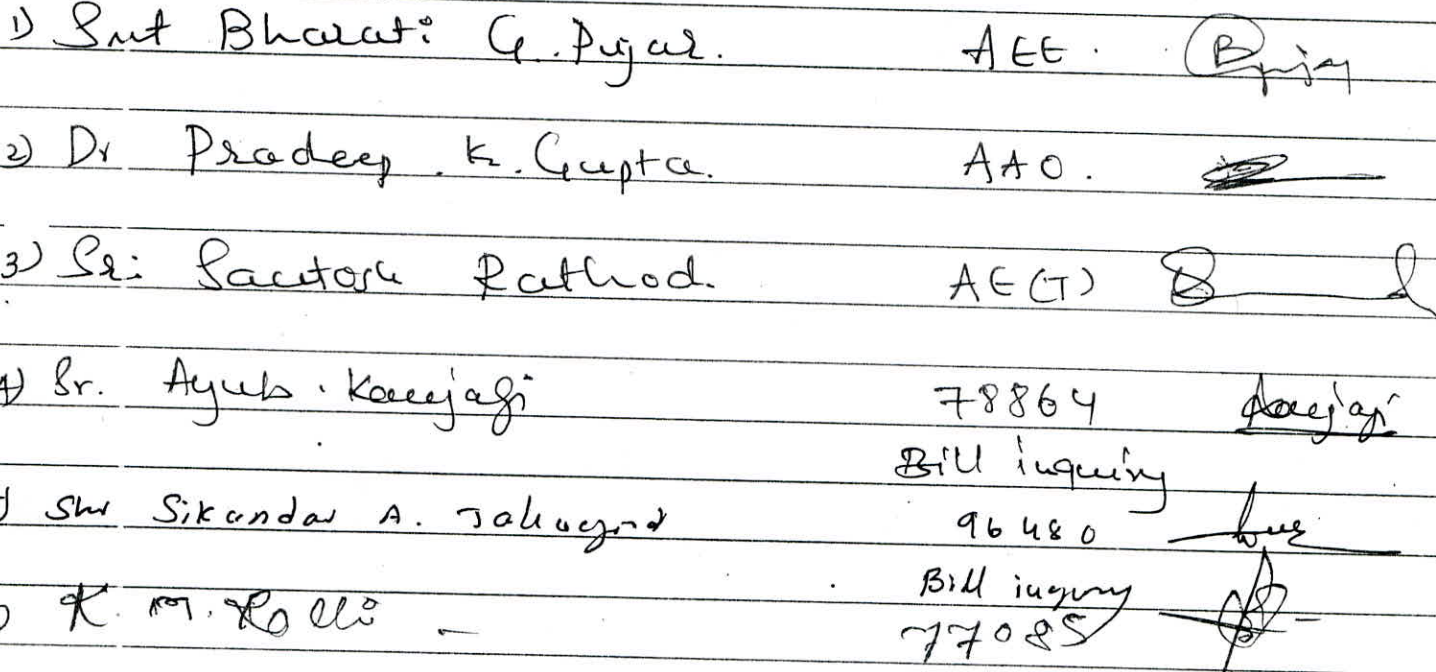 1) Smt Bharati G. Pujar. AEE.
2) Dr Pradeep . K. Gupta. AAO.
3) Sri Santosh Rathod. AE(T)
4) Sr. Ayub . Kanjagi 78864 Kanjagi
Bill inquiry
) Shr Sikandar A. 96480
Bill inqury
) K. M. Kolli - 77085